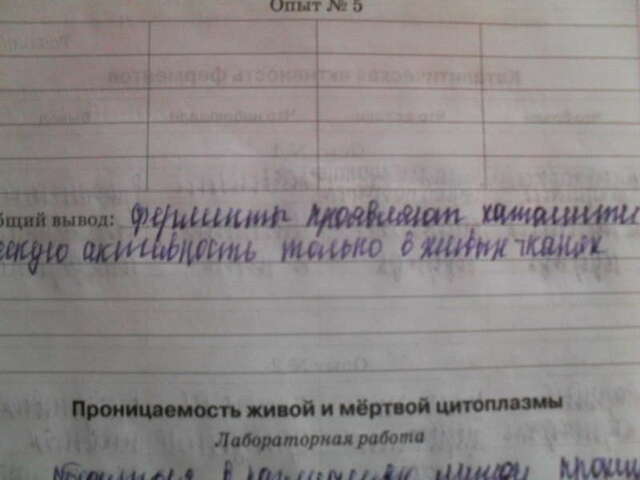 Опыт № 5
бщий вывод: Ферменты проявляют каталити
ескую активность только в живых тканях
Проницаемость живой и мёртвой цитоплазмы
Лабораторная работа